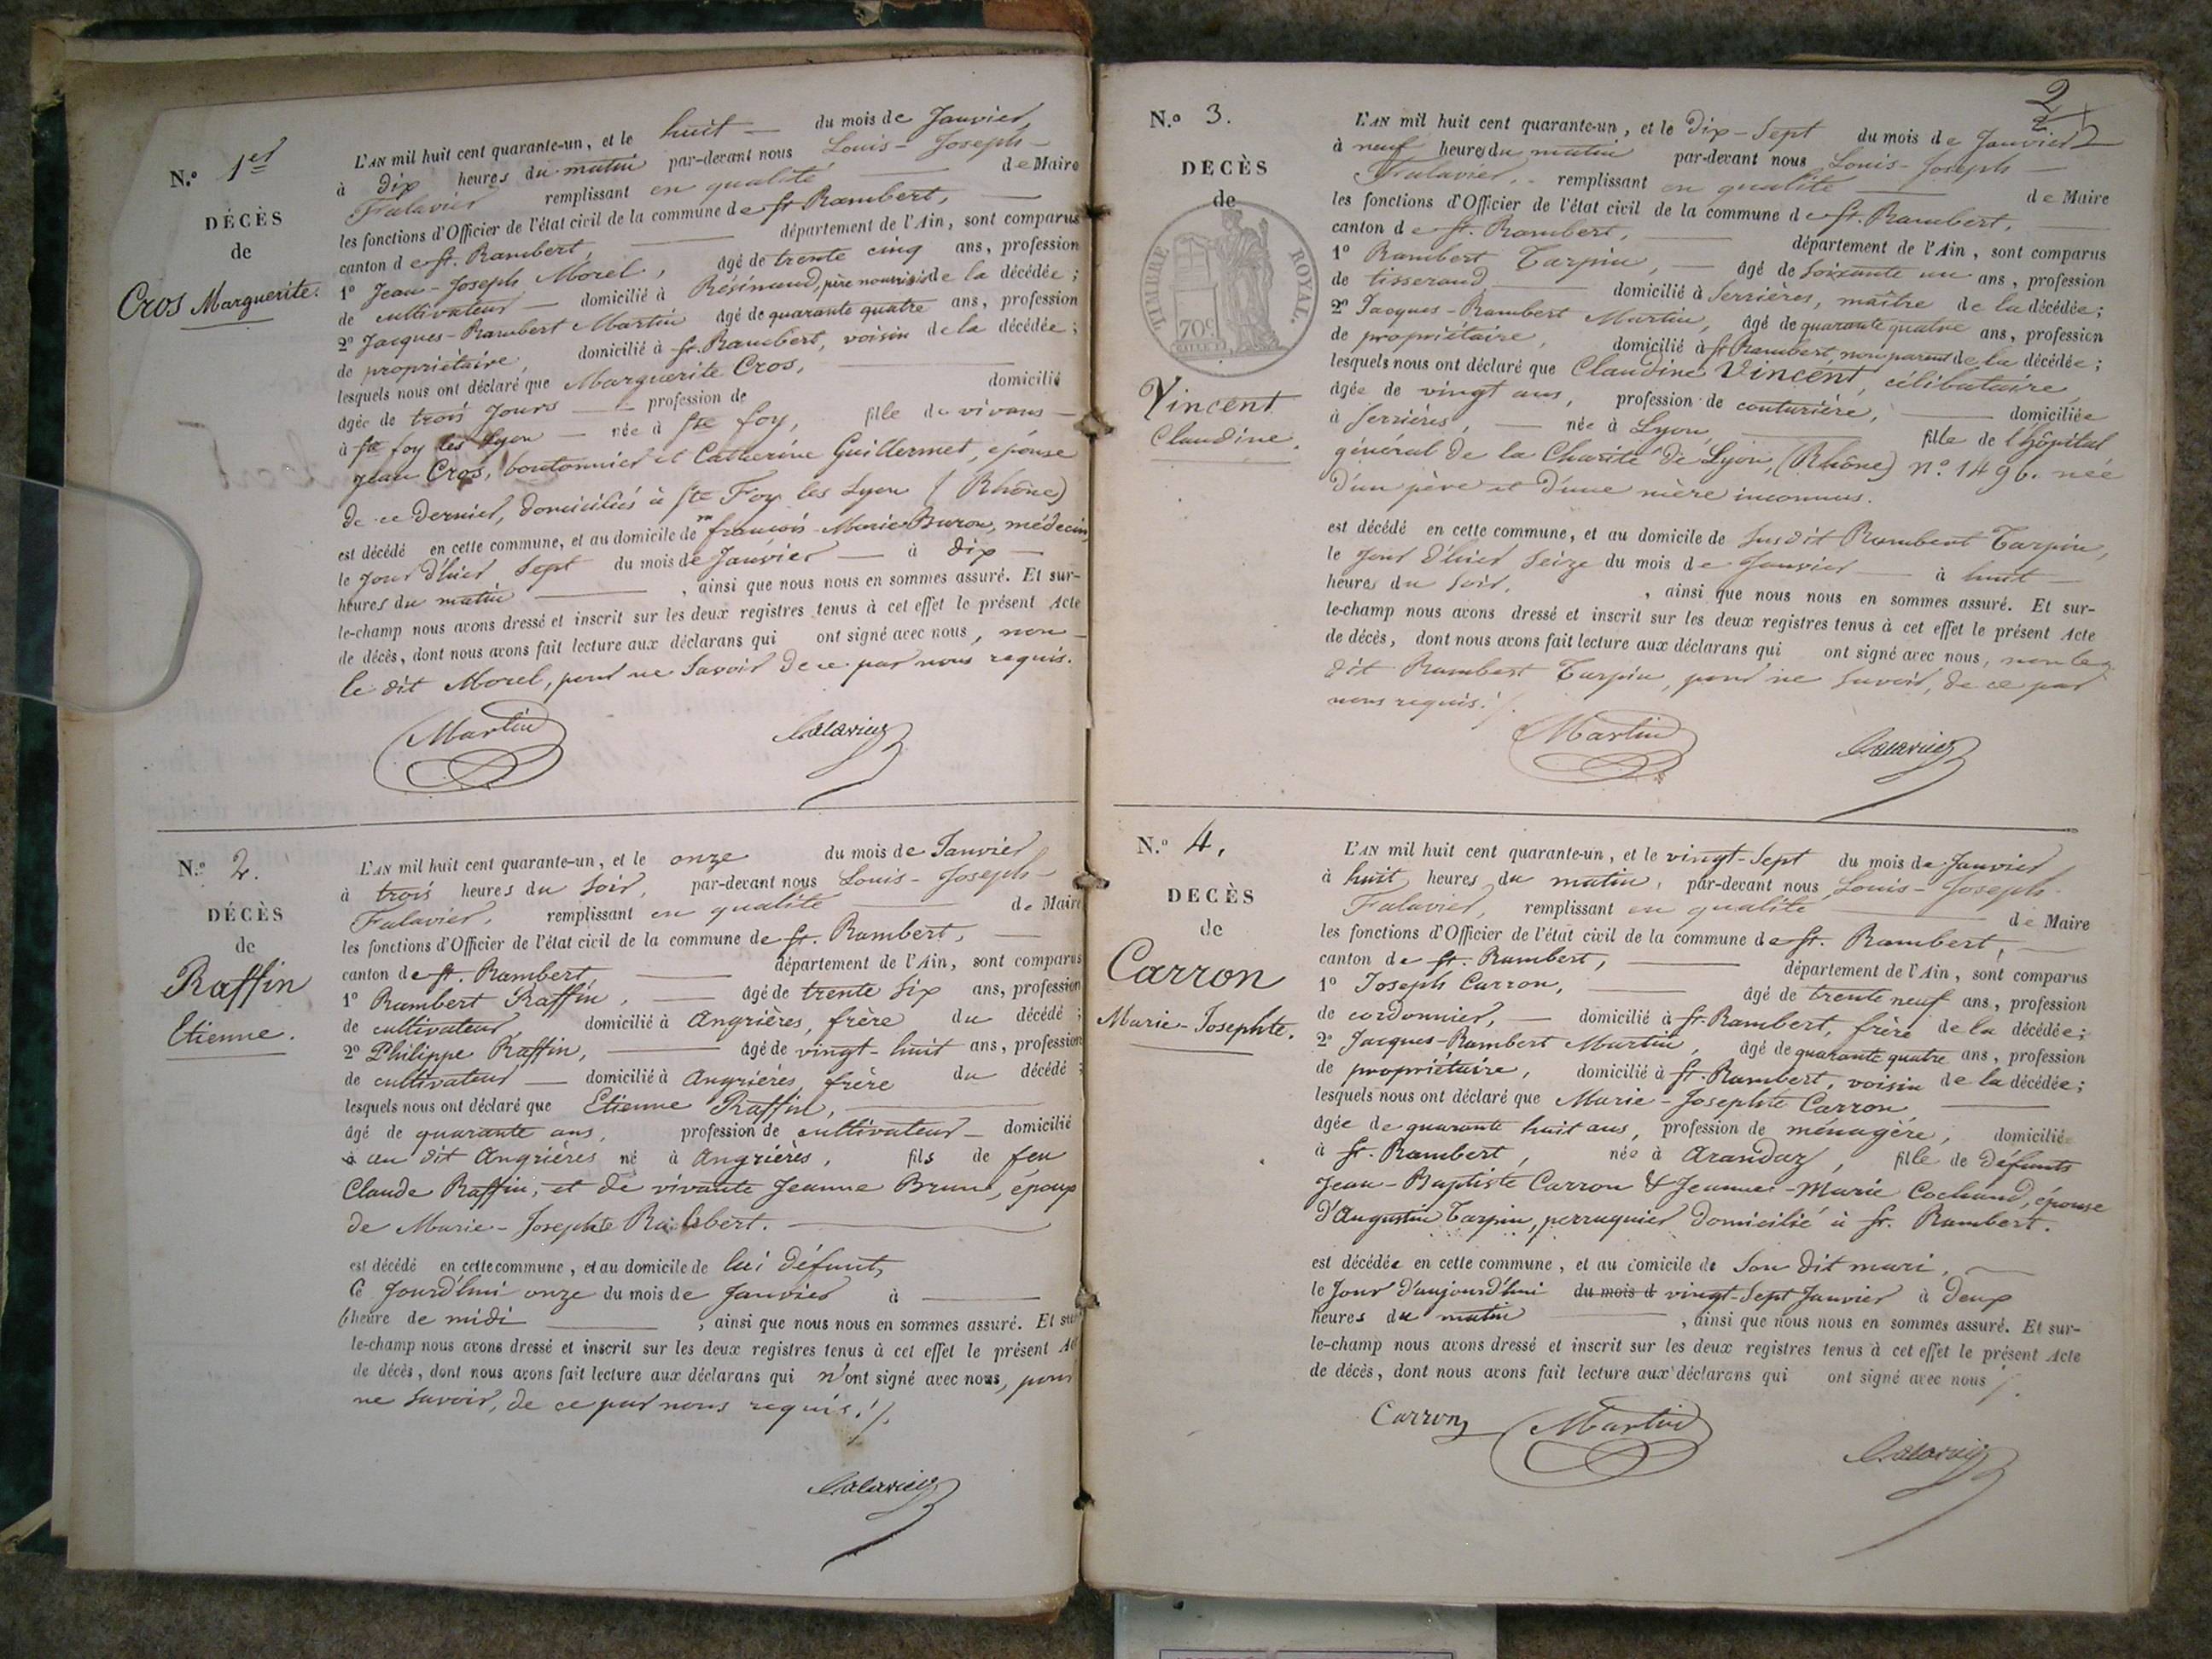 N.o 1er
DÉCÈS
de
Cros Marguerite.
L'AN mil huit cent quarante-un, et le huit — du mois de Janvier
à dix heures du matin par-devant nous Louis-Joseph
Falavier remplissant en qualité — de Maire
les fonctions d'Officier de l'état civil de la commune de St. Rambert,
canton de St. Rambert, — département de l'Ain, sont comparus
1o Jean-Joseph Morel, âgé de trente cinq ans, profession
de cultivateur — domicilié à Résinand, père nourrisier de la décédée;
2o Jacques-Rambert Martin âgé de quarante quatre ans, profession
de propriétaire, domicilié à St. Rambert, voisin de la décédée;
lesquels nous ont déclaré que Marguerite Cros, —
âgée de trois Jours — profession de domicilié
à Ste foy lès Lyon — née à Ste foy, fille de vivans —
Jean Cros, boutonnier et Catherine Guillermet, épouse
de ce dernier, domiciliés à Ste Foy les Lyon (Rhône)
est décédé en cette commune, et au domicile de mr françois-Marie Buron, médecin,
le jour d'hier sept du mois de Janvier — à dix —
heures du matin — , ainsi que nous nous en sommes assuré. Et sur-
le-champ nous avons dressé et inscrit sur les deux registres tenus à cet effet le présent Acte
de décès, dont nous avons fait lecture aux déclarans qui ont signé avec nous, non
le dit Morel, pour ne savoir de ce par nous requis.
Martin Falavier
N.o 2.
DÉCÈS
de
Raffin
Etienne.
L'AN mil huit cent quarante-un, et le onze du mois de Janvier
à trois heures du soir, par-devant nous Louis-Joseph
Falavier, remplissant en qualité — de Maire
les fonctions d'Officier de l'état civil de la commune de St. Rambert, —
canton de St. Rambert — département de l'Ain, sont comparus
1o Rambert Raffin, — âgé de trente six ans, profession
de cultivateur, domicilié à Angrières, frère du décédé;
2o Philippe Raffin, — âgé de vingt-huit ans, profession
de cultivateur — domicilié à Angrières, frère du décédé;
lesquels nous ont déclaré que Etienne Raffin, —
âgé de quarante ans, profession de cultivateur — domicilié
à au dit Angrières né à Angrières, fils de feu
Claude Raffin, et de vivante Jeanne Brun, époux
de Marie-Josephte —
est décédé en cette commune, et au domicile de lui défunt,
Ce Jourd'hui onze du mois de Janvier à —
heure de midi — , ainsi que nous nous en sommes assuré. Et sur
le-champ nous avons dressé et inscrit sur les deux registres tenus à cet effet le présent Acte
de décès, dont nous avons fait lecture aux déclarans qui n'ont signé avec nous, pour
ne savoir, de ce par nous requis./.
Falavier
2
N.o 3.
DECÈS
de
TIMBRE ROYAL.
70c
Vincent
Claudine.
L'AN mil huit cent quarante-un, et le dix-sept du mois de Janvier
à neuf heures du matin par-devant nous Louis-Joseph —
Falavier, remplissant en qualité — de Maire
les fonctions d'Officier de l'état civil de la commune de St. Rambert,
canton de St. Rambert, — département de l'Ain, sont comparus
1o Rambert Tarpin, — âgé de soixante un ans, profession
de tisserand — domicilié à Serrières, maître de la décédée;
2o Jacques-Rambert Martin, âgé de quarante quatre ans, profession
de propriétaire, domicilié à St Rambert, non parent de la décédée;
lesquels nous ont déclaré que Claudine Vincent, célibataire,
âgée de vingt ans, profession de couturière, — domiciliée
à Serrières, — née à Lyon, — fille de l'hôpital
général de la Charité de Lyon, (Rhône) n.o 1496. née
d'un père et d'une mère inconnus.
est décédé en cette commune, et au domicile de susdit Rambert Tarpin,
le jour d'hier seize du mois de Janvier — à huit —
heures du soir, , ainsi que nous nous en sommes assuré. Et sur-
le-champ nous avons dressé et inscrit sur les deux registres tenus à cet effet le présent Acte
de décès, dont nous avons fait lecture aux déclarans qui ont signé avec nous, non le
dit Rambert Tarpin, pour ne savoir, de ce par
nous requis./.
Martin Falavier
N.o 4.
DECÈS
de
Carron
Marie-Josephte.
L'AN mil huit cent quarante-un, et le vingt-sept du mois de Janvier
à huit heures du matin, par-devant nous Louis-Joseph
Falavier, remplissant en qualité — de Maire
les fonctions d'Officier de l'état civil de la commune de St. Rambert, —
canton de St. Rambert, — département de l'Ain, sont comparus
1o Joseph Carron, — âgé de trente neuf ans, profession
de cordonnier, — domicilié à St. Rambert, frère de la décédée;
2o Jacques-Rambert Martin, âgé de quarante quatre ans, profession
de propriétaire, domicilié à St. Rambert, voisin de la décédée;
lesquels nous ont déclaré que Marie-Josephte Carron —
âgée de quarante huit ans, profession de ménagère, domiciliée
à St. Rambert, née à Arandaz, fille de défunts
Jean-Baptiste Carron & Jeanne-Marie Cochand, épouse
d'Augustin Tarpin, perruquier domicilié à St. Rambert.
est décédée en cette commune, et au domicile de son dit mari, —
le Jour d'aujourd'hui du mois d vingt-sept Janvier à deux
heures du matin — , ainsi que nous nous en sommes assuré. Et sur-
le-champ nous avons dressé et inscrit sur les deux registres tenus à cet effet le présent Acte
de décès, dont nous avons fait lecture aux déclarans qui ont signé avec nous /.
Carron Martin Falavier